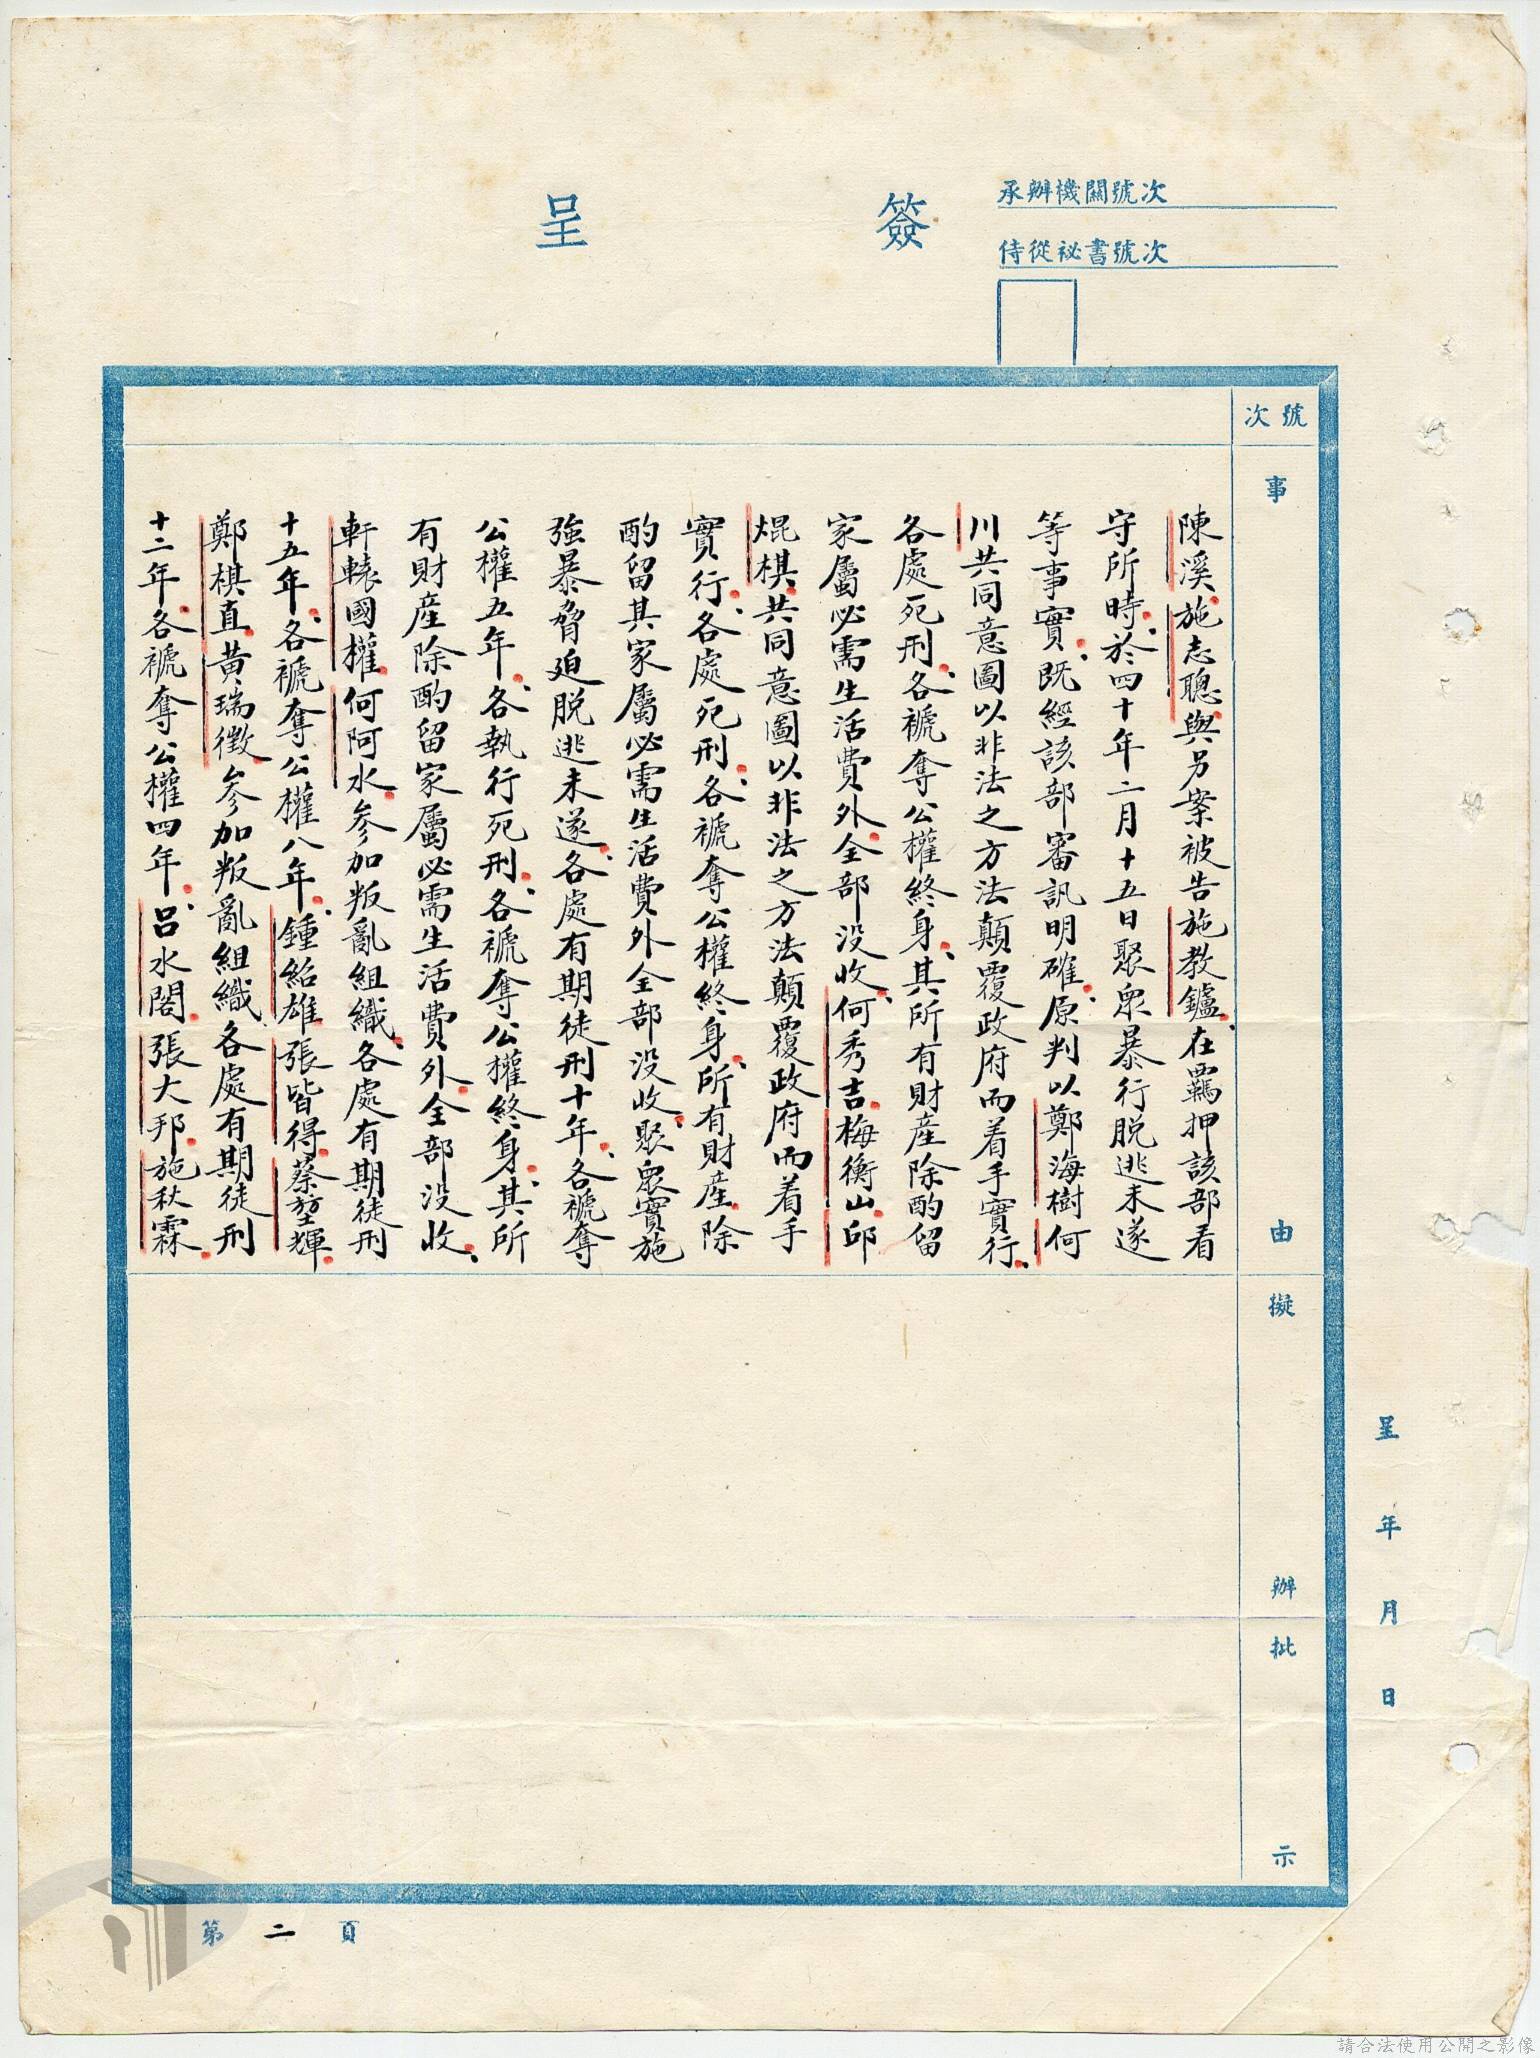 簽呈
承辦機關號次
侍從祕書號次
號次
事由
擬辦
批示
陳溪施志聰與另案被告施教鑪在羈押該部看
守所時於四十年二月十五日聚眾暴行脫逃未遂
等事實既經該部審訊明確原判以鄭海樹何
川共同意圖以非法之方法顛覆政府而着手實行
各處死刑各褫奪公權終身其所有財產除酌留
家屬必需生活費外全部没收何秀吉梅衡山邱
焜棋共同意圖以非法之方法顛覆政府而着手
實行各處死刑各褫奪公權終身所有財產除
酌留其家屬必需生活費外全部没收聚眾實施
強暴脅迫脫逃未遂各處有期徒刑十年各褫奪
公權五年各執行死刑各褫奪公權終身其所
有財產除酌留家屬必需生活費外全部没收
軒轅國權何阿水參加叛亂組織各處有期徒刑
十五年各褫奪公權八年鍾紹雄張皆得蔡堃輝
鄭棋直黃瑞徵參加叛亂組織各處有期徒刑
十二年各褫奪公權四年呂水閣張大邦施秋霖
呈 年 月 日
第二頁
請合法使用公開之影像